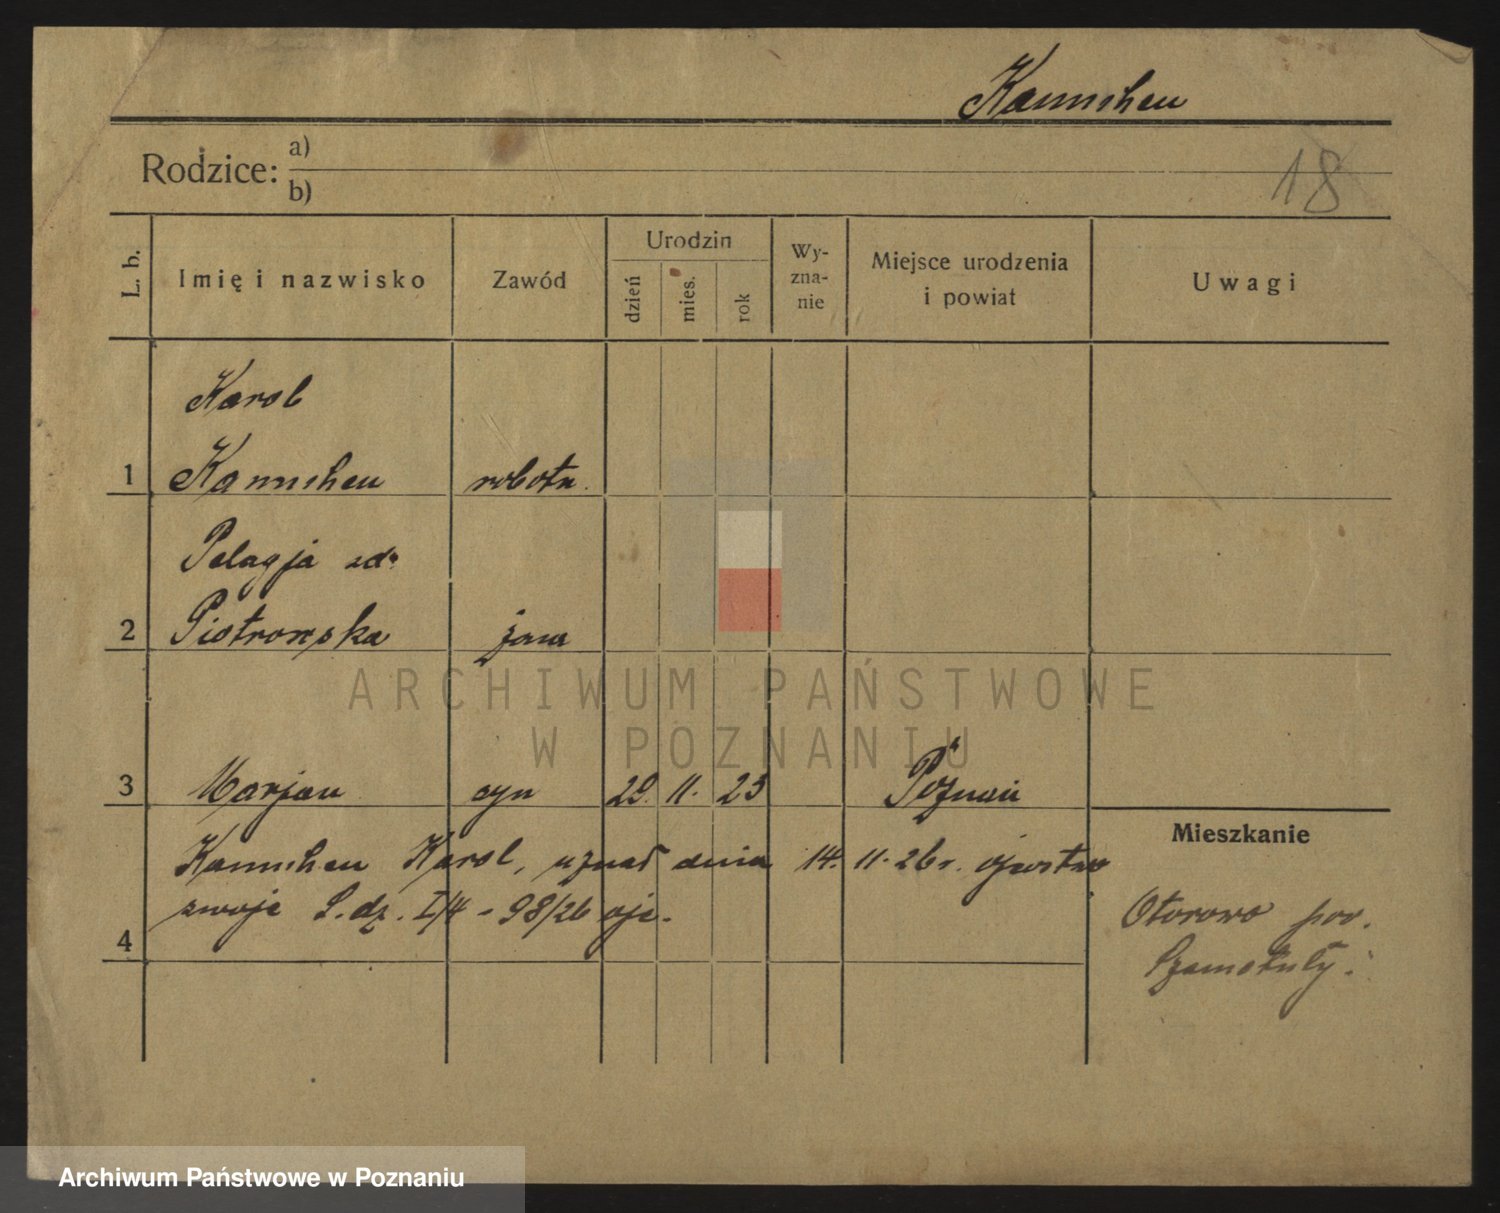 Kannchen
Rodzice: a)
b)
18
L. b.
Imię i nazwisko
Zawód
Urodzin
dzień
mies.
rok
Wy-
zna-
nie
Miejsce urodzenia
i powiat
Uwagi
Karol
1 Kannchen robotn.
Pelagja zd.
2 Piotrowska żona
3 Marjan syn 29. 11. 23 Poznań
Kannchen Karol, uznał dnia 14. 11. 26 r. ojcostwo
swoje L. dz. I/4 - 98/26 ojc.
4
Mieszkanie
Otorowo pow.
Szamotuły.
ARCHIWUM PAŃSTWOWE
W POZNANIU
Archiwum Państwowe w Poznaniu